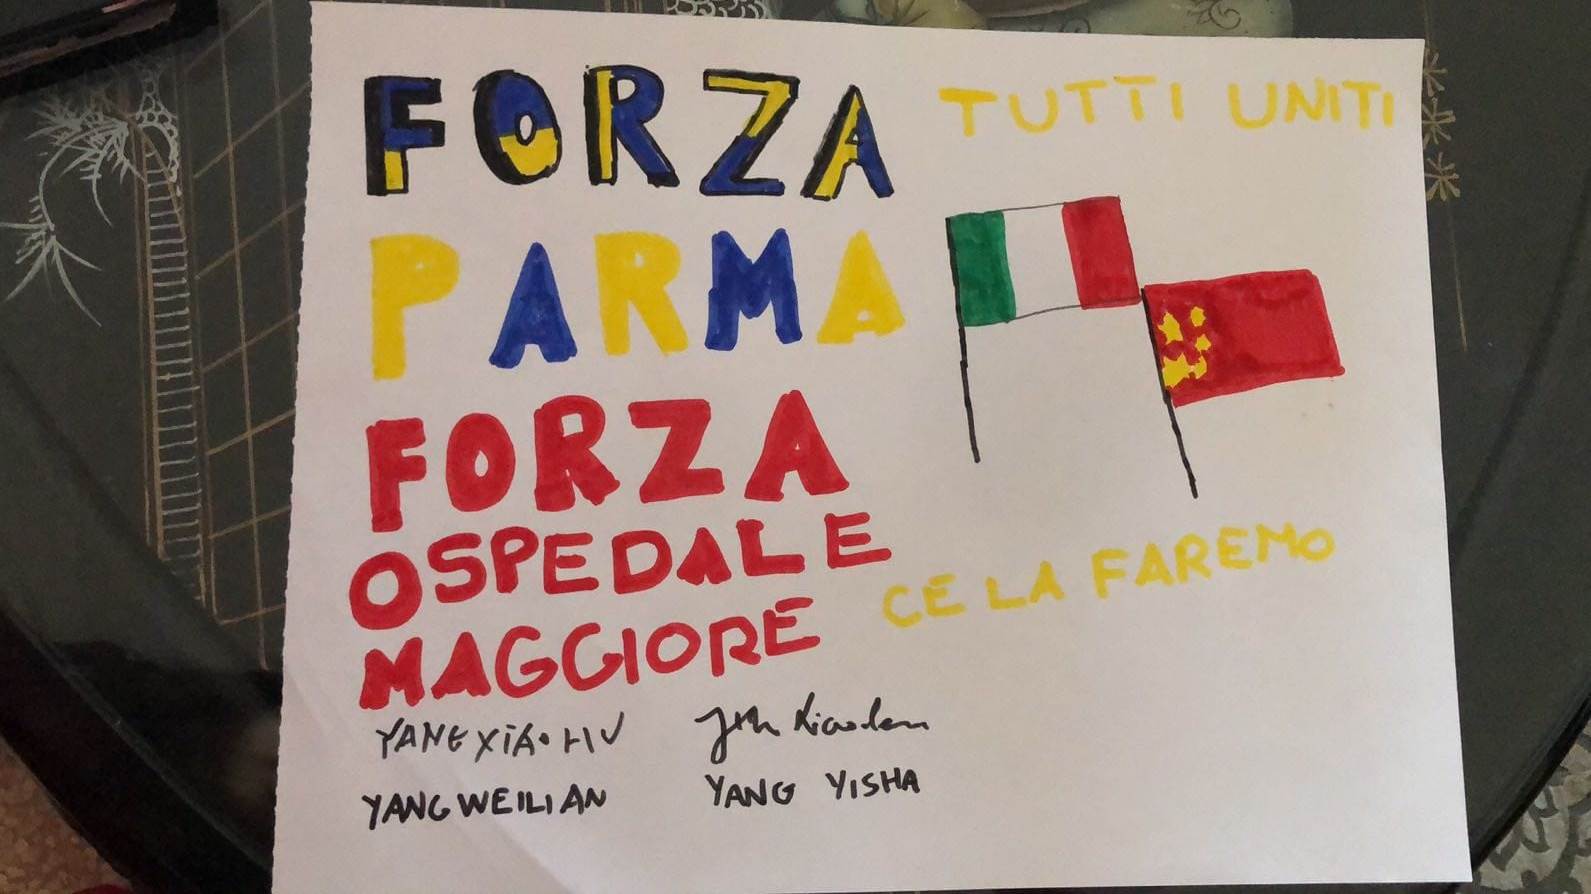 FORZA
PARMA
FORZA
OSPEDALE
MAGGIORE
TUTTI UNITI
CE LA FAREMO
YANG XIAOHU
YANG WEILIAN
YANG YISHA